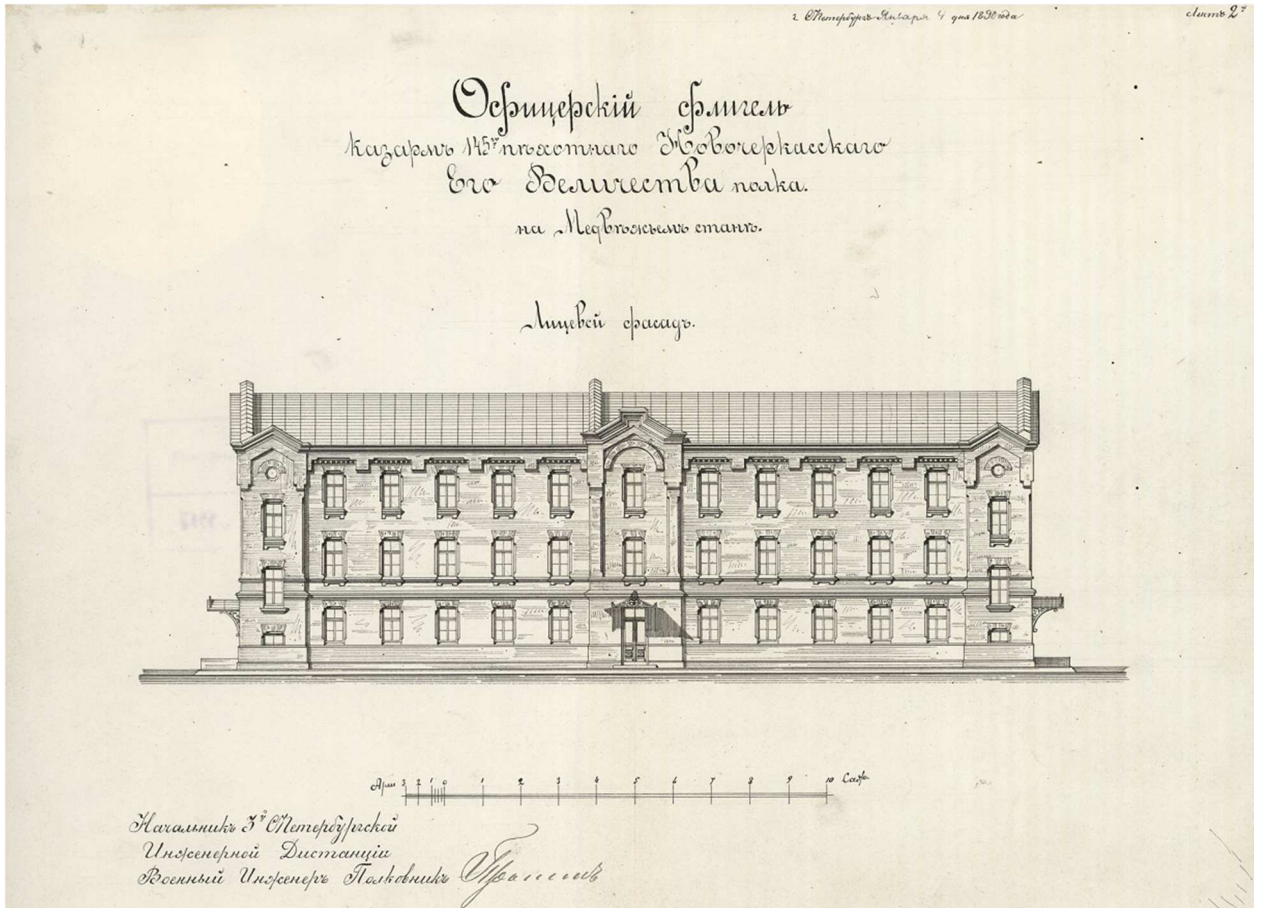 г. СПетербургъ Января 4 дня 1890 года
Листъ 2й
Офицерскій флигель
казармъ 145го пѣхотнаго Новочеркасскаго
Его Величества полка.
на Медвѣжьемъ станѣ.
Лицевой фасадъ.
Арш 3 2 1 0 1 2 3 4 5 6 7 8 9 10 Саж.
Начальникъ 3й СПетербургской
Инженерной Дистанціи
Военный Инженеръ Полковникъ